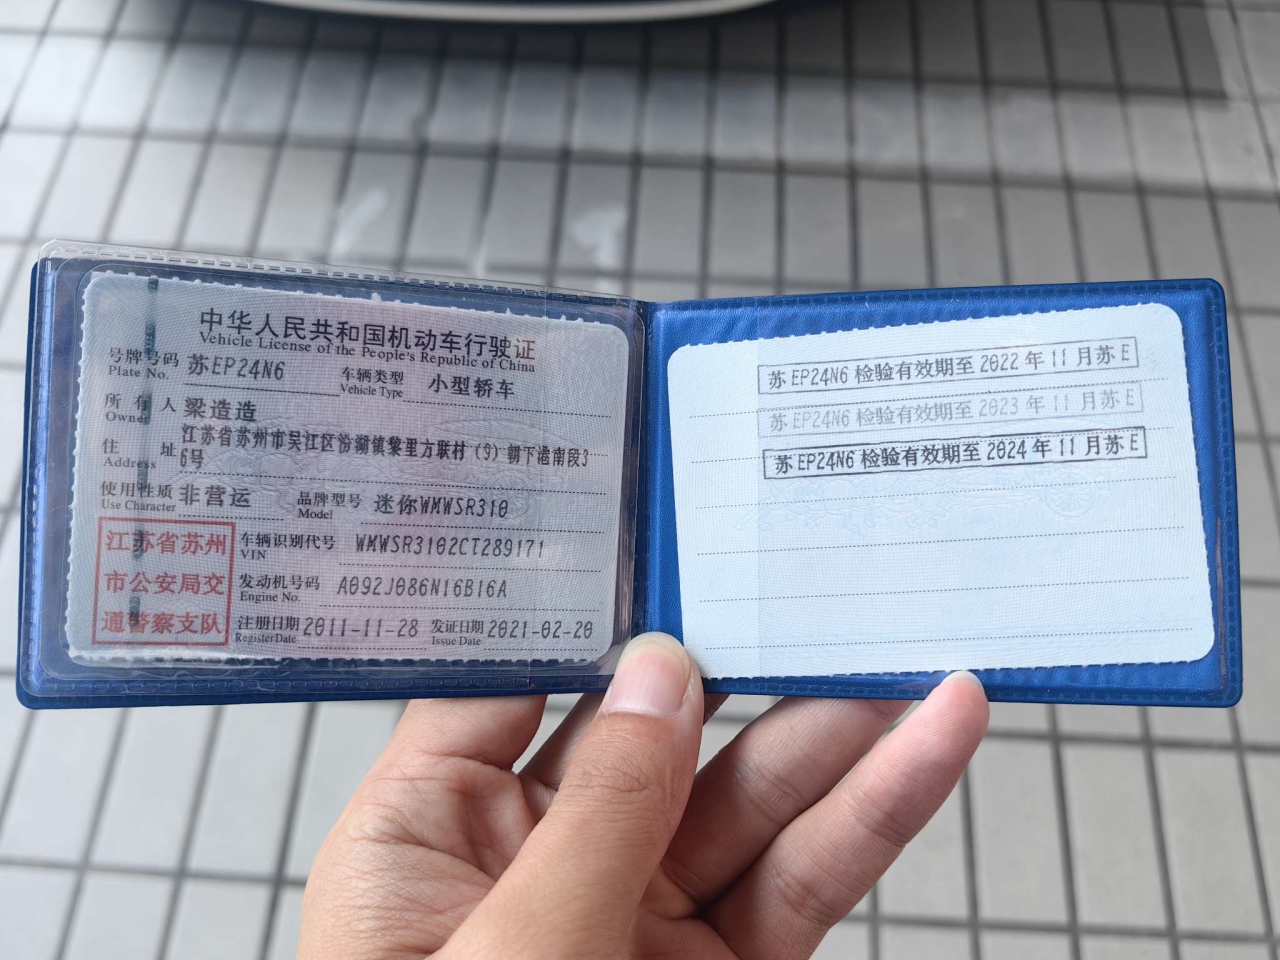 中华人民共和国机动车行驶证
Vehicle License of the People's Republic of China
号牌号码 苏EP24N6 车辆类型 小型轿车
Plate No. Vehicle Type
所有人 梁造造
Owner
住址 江苏省苏州市吴江区汾湖镇黎里方联村（9）朝下港南段3
Address 6号
使用性质 非营运 品牌型号 迷你WMWSR310
Use Character Model
江苏省苏州
市公安局交
通警察支队
车辆识别代号 WMWSR3102CT289171
VIN
发动机号码 A092J086N16B16A
Engine No.
注册日期 2011-11-28 发证日期 2021-02-20
Register Date Issue Date
苏EP24N6 检验有效期至 2022 年 11 月苏 E
苏EP24N6 检验有效期至 2023 年 11 月苏 E
苏EP24N6 检验有效期至 2024 年 11 月苏 E